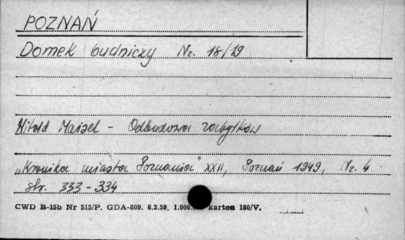 POZNAŃ
Domek budniczy Nr. 18/19
Witold Maisel - Odbudowa zabytków
„Kronika miasta Poznania" XXII, Poznań 1949, Nr. 4
str. 333-334
CWD B-15b Nr 515/P. GDA-809. 6.3.59. 1.000.000 karton 180/V.